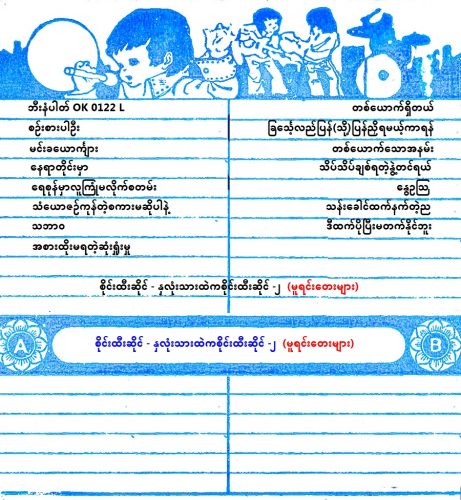 ဘီးနံပါတ် OK 0122 L
စဉ်းစားပါဦး
မင်းခယောင်္ကျား
နေရာတိုင်းမှာ
ရေစုန်မှာလူကြုံမလိုက်စတမ်း
သံယောဇဉ်ကုန်တဲ့စကားမဆိုပါနဲ့
သဘာဝ
အစားထိုးမရတဲ့ဆုံးရှုံးမှု
တစ်ယောက်ရှိတယ်
ခြင်္သေ့လည်ပြန်(သို့)ပြန်ညှိရမယ့်ကာရန်
တစ်ယောက်သောအနမ်း
သိပ်သိပ်ချစ်ရတဲ့နွဲ့တင်ရယ်
နွေဥဩ
သန်းခေါင်ထက်နက်တဲ့ည
ဒီထက်ပိုပြီးမတက်နိုင်ဘူး
စိုင်းထီးဆိုင် - နှလုံးသားထဲကစိုင်းထီးဆိုင် -၂ (မူရင်းတေးများ)
A စိုင်းထီးဆိုင် - နှလုံးသားထဲကစိုင်းထီးဆိုင် -၂ (မူရင်းတေးများ) B